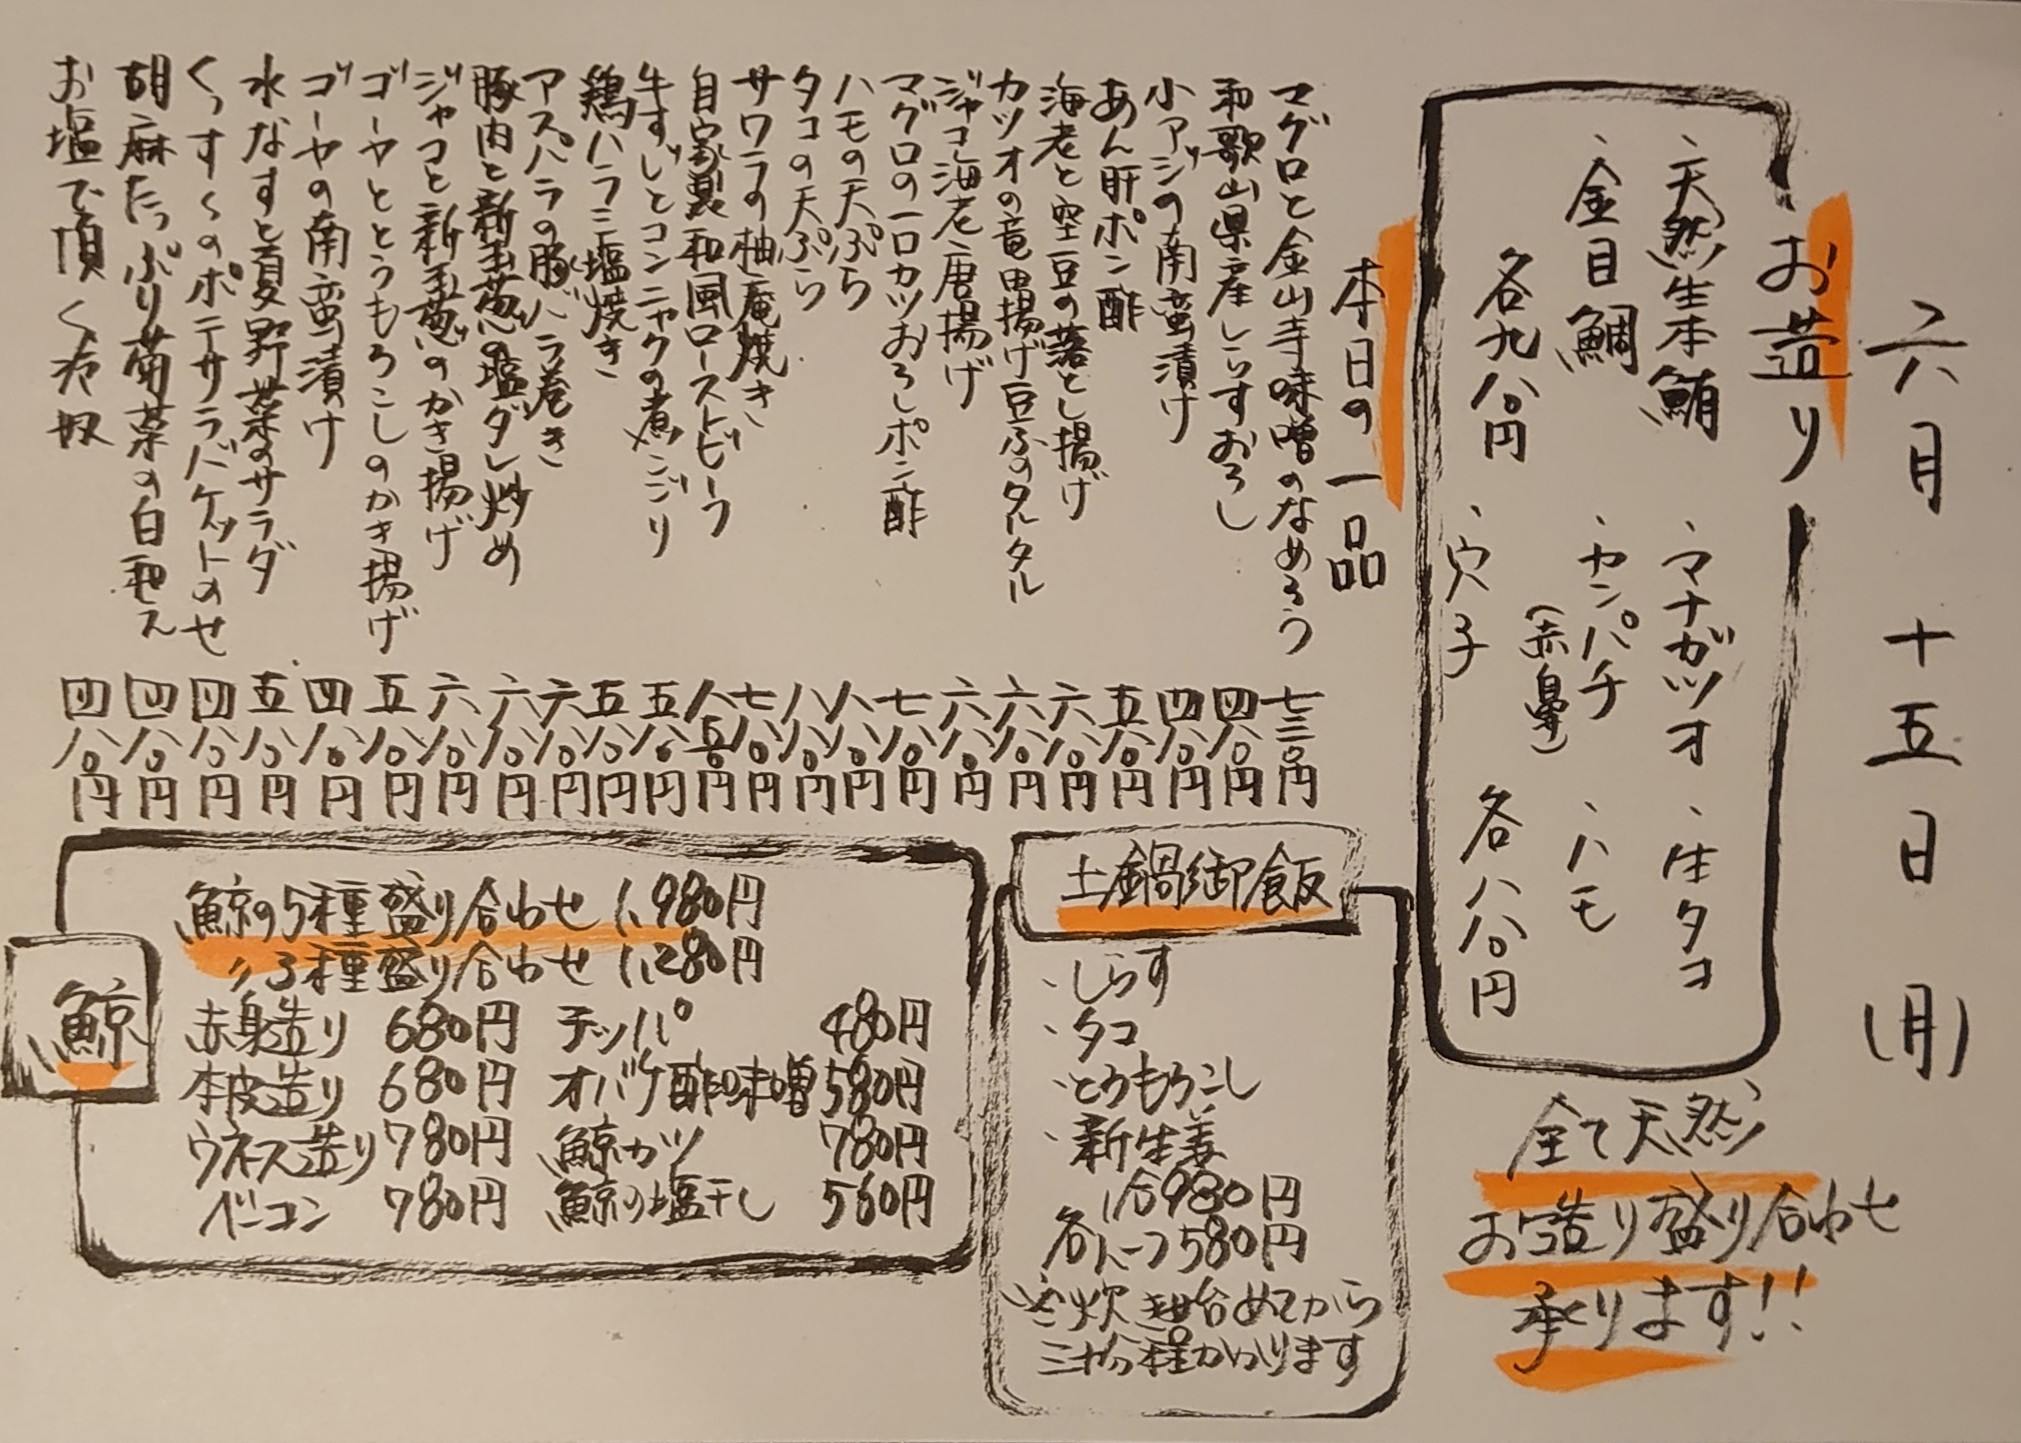 六月 十五日 (月)
お造り
・天然生本鮪 ・マナガツオ ・生タコ
・金目鯛 ・カンパチ(赤鼻) ・ハモ
各九八〇円 ・穴子 各八八〇円
全て天然
お造り盛り合わせ
承ります!!
本日の一品
マグロと金山寺味噌のなめろう 七三〇円
和歌山県産しらすおろし 四八〇円
小アジの南蛮漬け 四八〇円
あん肝ポン酢 五八〇円
海老と空豆の落とし揚げ 六八〇円
カツオの竜田揚げ豆ふのタルタル 六八〇円
ジャコ海老唐揚げ 六八〇円
マグロの一口カツおろしポン酢 七八〇円
ハモの天ぷら 八八〇円
タコの天ぷら 八八〇円
サワラの柚庵焼き 七八〇円
自家製和風ローストビーフ 八五〇円
牛すじとコンニャクの煮こごり 五八〇円
鶏ハラミ塩焼き 五八〇円
アスパラの豚バラ巻き 六八〇円
豚肉と新玉葱の塩ダレ炒め 六八〇円
ジャコと新玉葱のかき揚げ 六八〇円
ゴーヤととうもろこしのかき揚げ 五八〇円
ゴーヤの南蛮漬け 四八〇円
水なすと夏野菜のサラダ 五八〇円
くっすくのポテサラバケットのせ 四八〇円
胡麻たっぷり菊菜の白和え 四八〇円
お塩で頂く冷奴 四八〇円
土鍋御飯
・しらす
・タコ
・とうもろこし
・新生姜
1合980円
各ハーフ580円
炊き始めてから
三十分程かかります
鯨
鯨の5種盛り合わせ 1,980円
〃3種盛り合わせ 1,280円
赤身造り 680円 テッパ 480円
本皮造り 680円 オバケ酢味噌 580円
ウネース造り 780円 鯨カツ 780円
ベーコン 780円 鯨の塩干し 560円